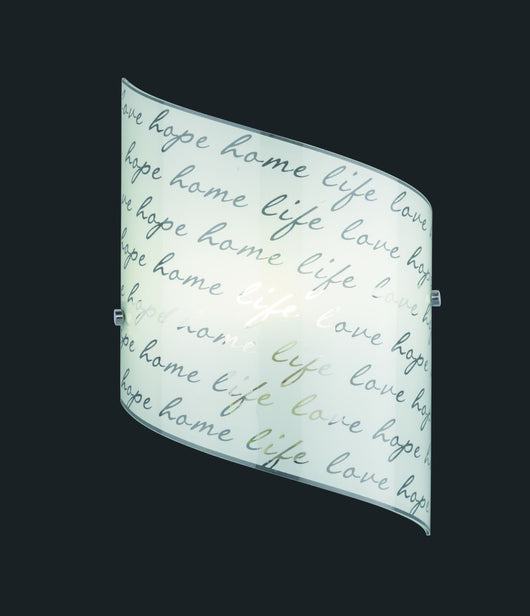 love hope home life love
hope home life love hop
ve hope home life love
hope home life love hope
e hope home life love ho
pe home life love hope
hope home life love hope